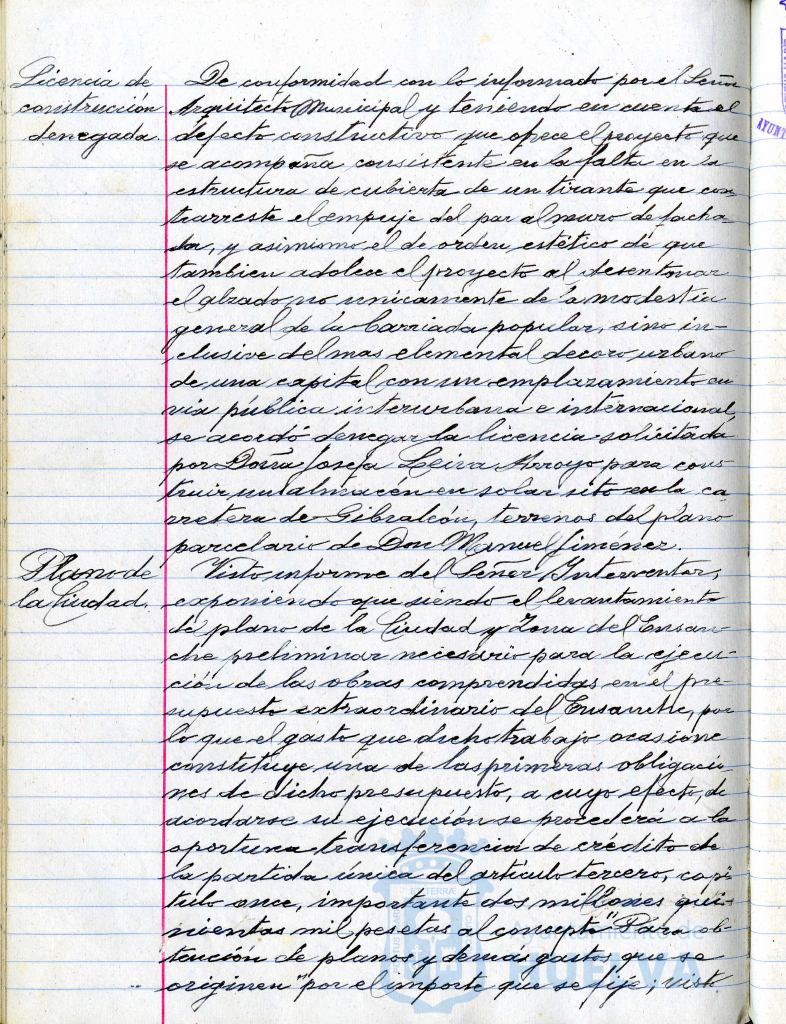 Licencia de
construcción
denegada.
De conformidad con lo informado por el Señor
Arquitecto Municipal y teniendo en cuenta el
defecto constructivo que ofrece el proyecto que
se acompaña consistente en la falta en la
estructura de cubierta de un tirante que con-
trarreste el empuje del par al muro de facha-
da, y asimismo el de orden estético de que
tambien adolece el proyecto al desentonar
el alzado no unicamente de la modestia
general de la barriada popular, sino in-
clusive del mas elemental decoro urbano
de una capital con un emplazamiento en
via pública interurbana e internacional,
se acordó denegar la licencia solicitada
por Doña Josefa Leiva Arroyo para cons-
truir un almacén en solar sito en la ca
rretera de Gibraleón, terrenos del plano
parcelario de Don Manuel Jiménez.
Plano de
la Ciudad.
Visto informe del Señor Interventor,
exponiendo que siendo el levantamiento
de plano de la Ciudad y Zona del Ensan-
che preliminar necesario para la ejecu-
ción de las obras comprendidas en el pre-
supuesto extraordinario del Ensanche, por
lo que el gasto que dicho trabajo ocasione
constituye una de las primeras obligacio-
nes de dicho presupuesto, a cuyo efecto, de
acordarse su ejecución se procederá a la
oportuna transferencia de crédito de
la partida única del artículo tercero, capí-
tulo once, importante dos millones qui-
nientas mil pesetas al concepto "Para ob-
tención de planos y demas gastos que se
originen" por el importe que se fije; visto
Ayuntamiento de
HUELVA